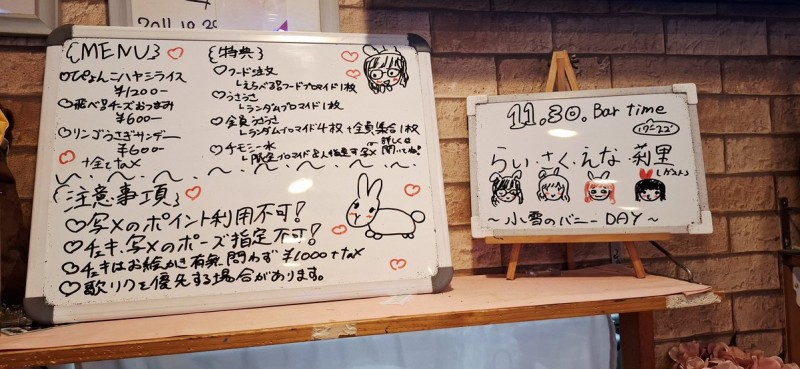 2011.10.29
{MENU}
♡ぴょんこハヤシライス
¥1200-
♡飛べ!チーズおつまみ
¥600-
♡リンゴうさぎサンデー
¥600-
+全とtax
{特典}
♡フード注文
↳えらべるフードブロマイド1枚
♡うさうさ
↳ランダムブロマイド1枚
♡全員うさうさ
↳ランダムブロマイド4枚+全員集合1枚
♡チモシー水
↳限定ブロマイド&人指定可写メ
詳しくは
聞いてね!
{注意事項}
♡写メのポイント利用不可!
♡チェキ、写メのポーズ指定不可!
♡チェキはお絵かき有無問わず¥1000+tax
♡歌リクを優先する場合があります。
11.30. Bar time
17-22
らい・さく・えな・莉里
(ゲスト)
〜小雪のバニーDAY〜